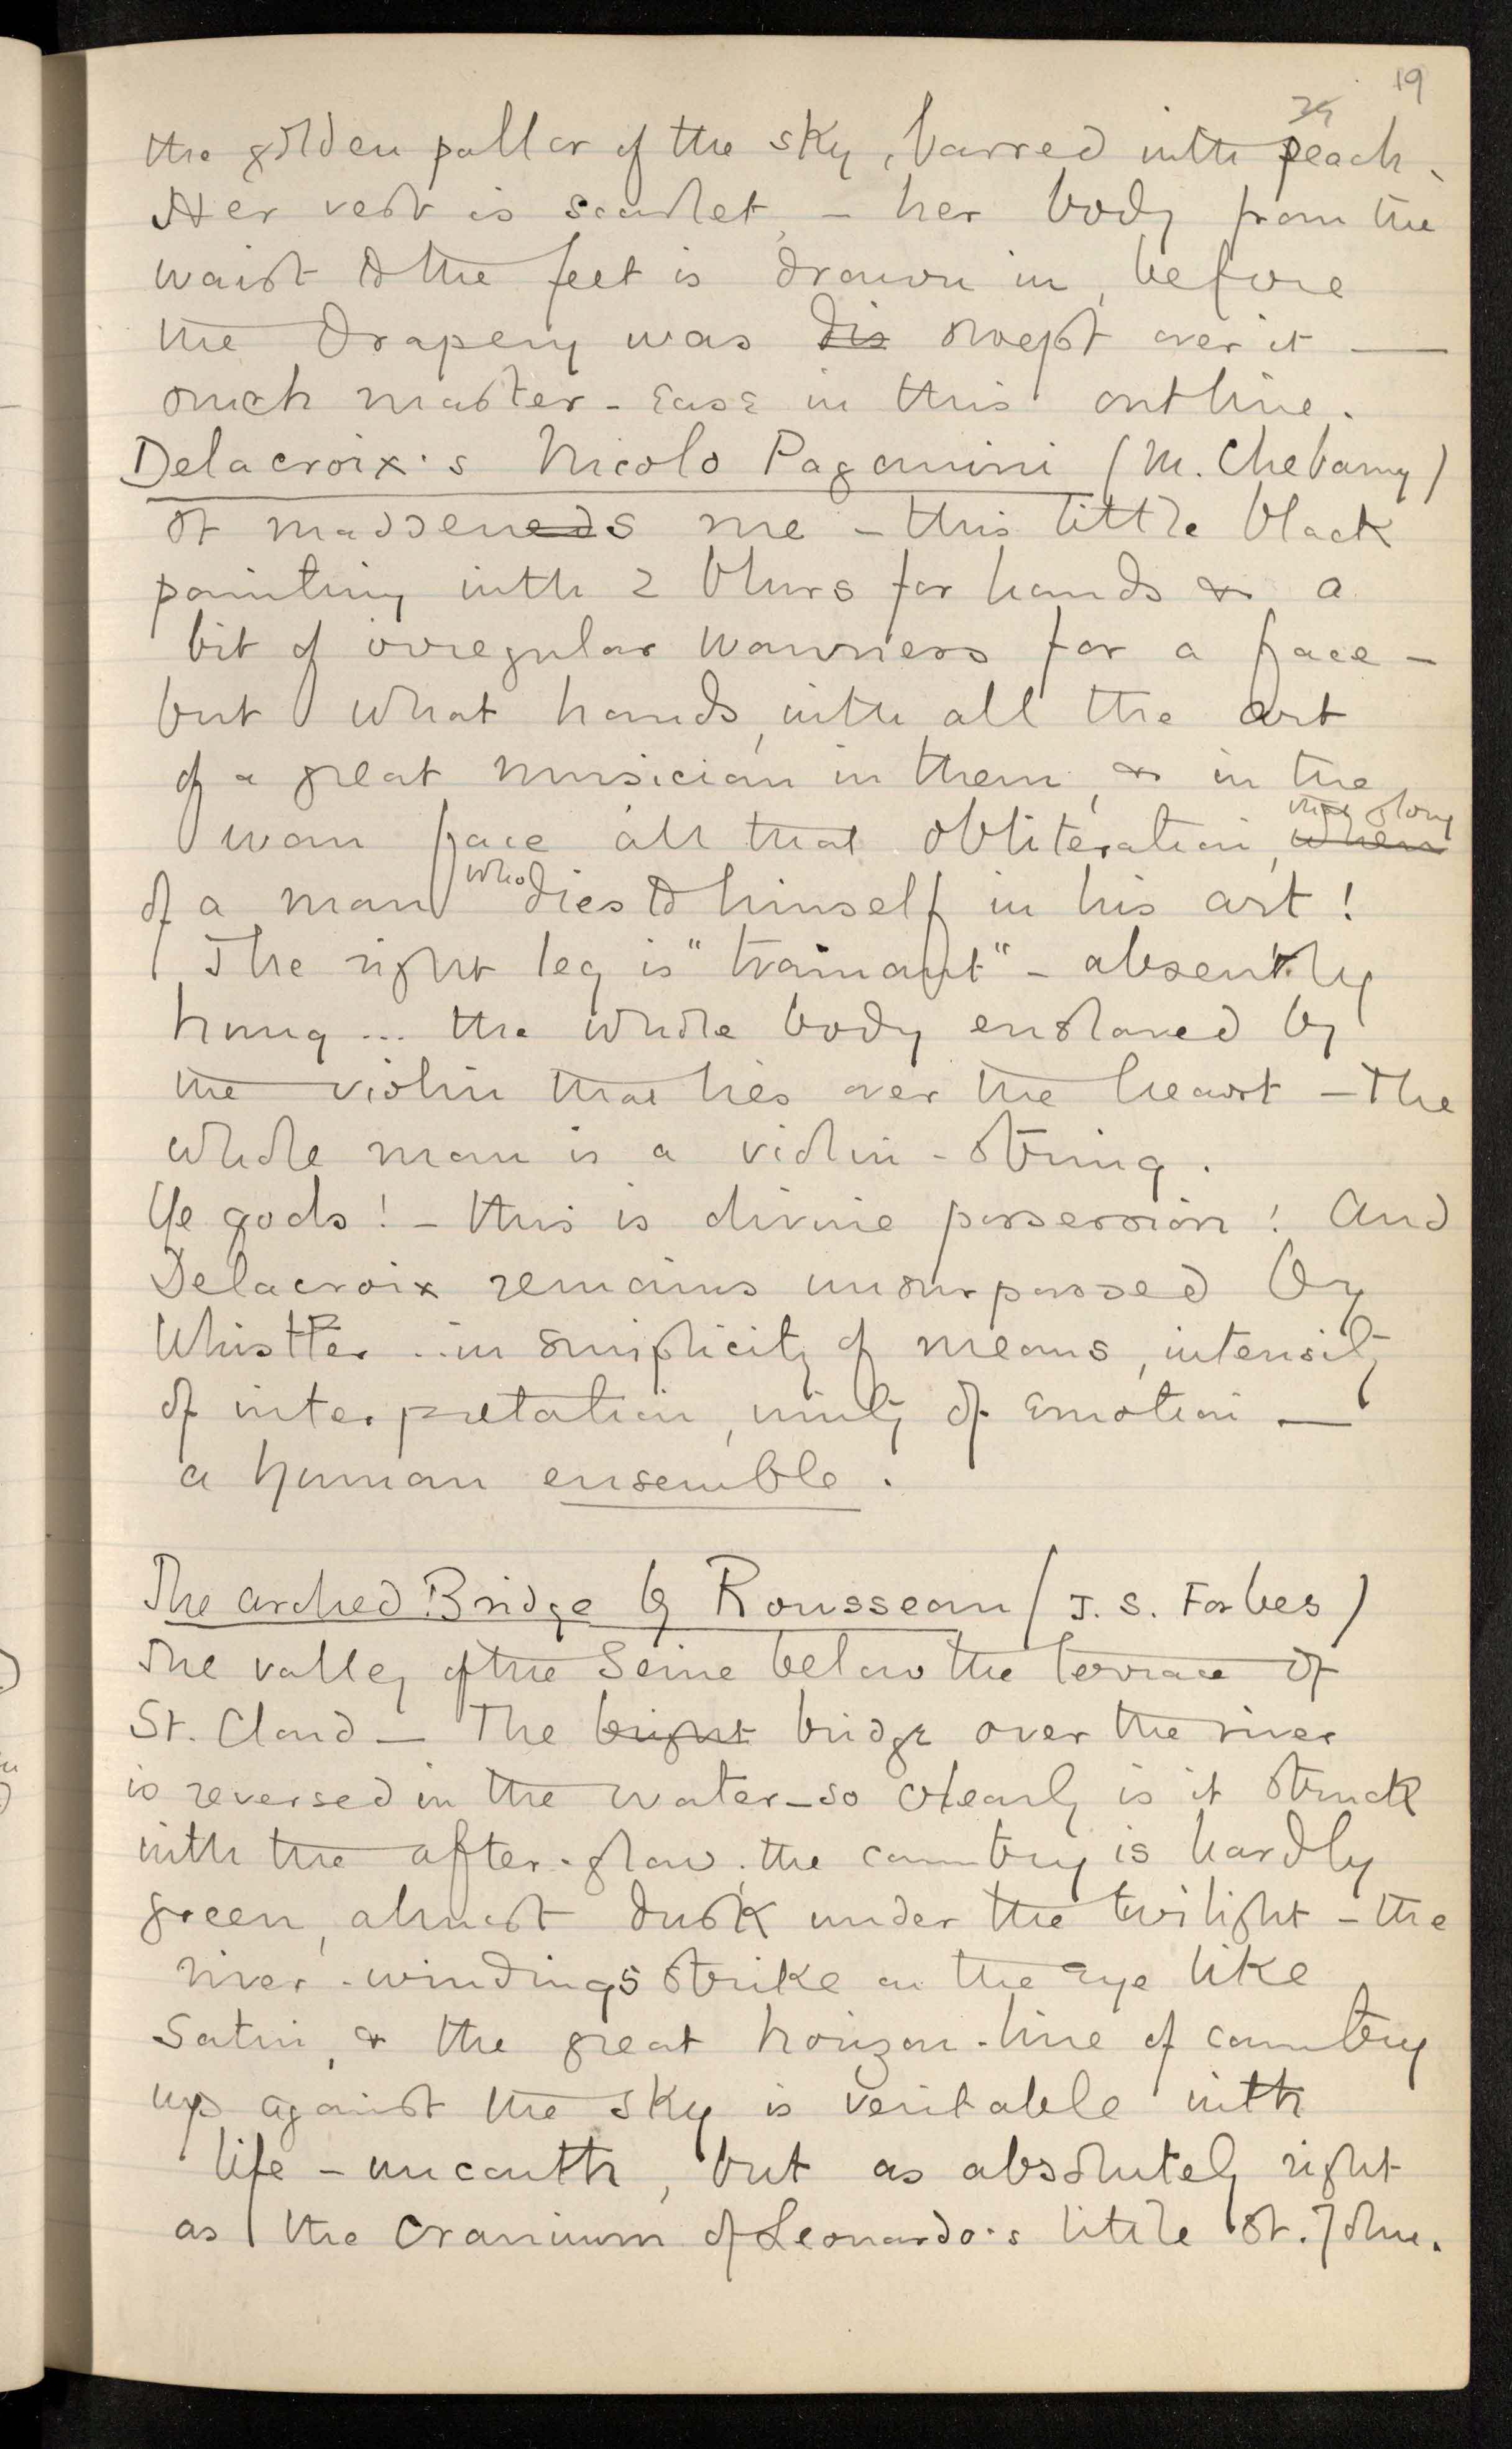 19
the golden pallor of the sky, barred with peach.
Her vest is scarlet, – her body from the
waist to the feet is drawn in, before
the drapery was dis swept over it —
such master-ease in this outline.
Delacroix's Nicolo Paganini (M. Chebamy)
It maddeneds me – this little black
painting with 2 blurs for hands & a
bit of irregular wanness for a face –
but what hands, with all the art
of a great musician in them, & in the
wan face all that obliteration, when
that glory
of a man who dies to himself in his art!
The right leg is "trainant" – absently
hung ... the whole body enslaved by
the violin that lies over the heart – The
whole man is a violin-string.
Ye gods! – this is divine possession! And
Delacroix remains unsurpassed by
Whistler .. in simplicity of means, intensity
of interpretation, unity of emotion —
a human ensemble.
The Arched Bridge by Rousseau (J. S. Forbes)
The valley of the Seine below the terrace of
St. Cloud – The bright bridge over the river
is reversed in the water – so clearly is it struck
with the after-glow; the country is hardly
green, almost dusk under the twilight – the
river-windings strike on the eye like
satin, & the great horizon-line of country
up against the sky is veritable with
life – uncouth, but as absolutely right
as the cranium of Leonardo's little St. John.